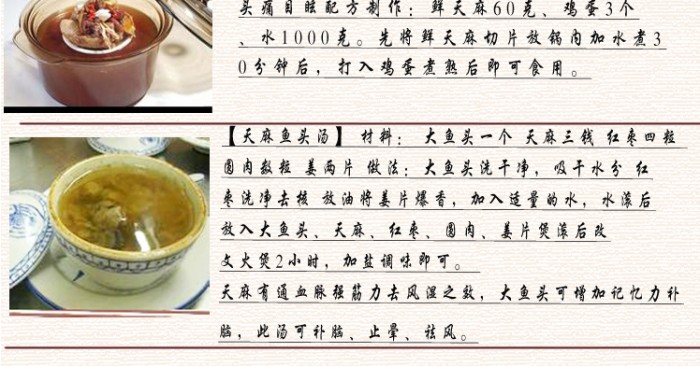 头痛目眩配方制作：鲜天麻60克、鸡蛋3个
、水1000克。先将鲜天麻切片放锅内加水煮3
0分钟后，打入鸡蛋煮熟后即可食用。
【天麻鱼头汤】 材料： 大鱼头一个 天麻三钱 红枣四粒
圆肉数粒 姜两片 做法：大鱼头洗干净，吸干水分 红
枣洗净去核 放油将姜片爆香，加入适量的水，水滚后
放入大鱼头、天麻、红枣、圆肉、姜片煲滚后改
文火煲2小时，加盐调味即可。
天麻有通血脉强筋力去风湿之效，大鱼头可增加记忆力补
脑，此汤可补脑、止晕、祛风。